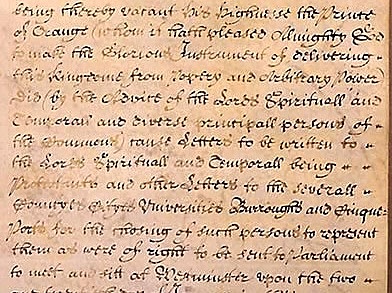 being thereby vacant His Highnesse the Prince
of Orange (whome it hath pleased Almighty God
to make the Glorious Instrument of delivering
this Kingdome from Popery and Arbitrary Power
Did (by the Advice of the Lords Spirituall and
Temporall and diverse principall persons of
the Commons) cause Letters to be written to
the Lords Spirituall and Temporall being
Protestants and other Letters to the severall
Countyes Cityes Universities Burroughs and Cinque
Ports for the chosing of such persons to represent
them as were of right to be sent to Parliament
to meet and sitt at Westminster upon the two